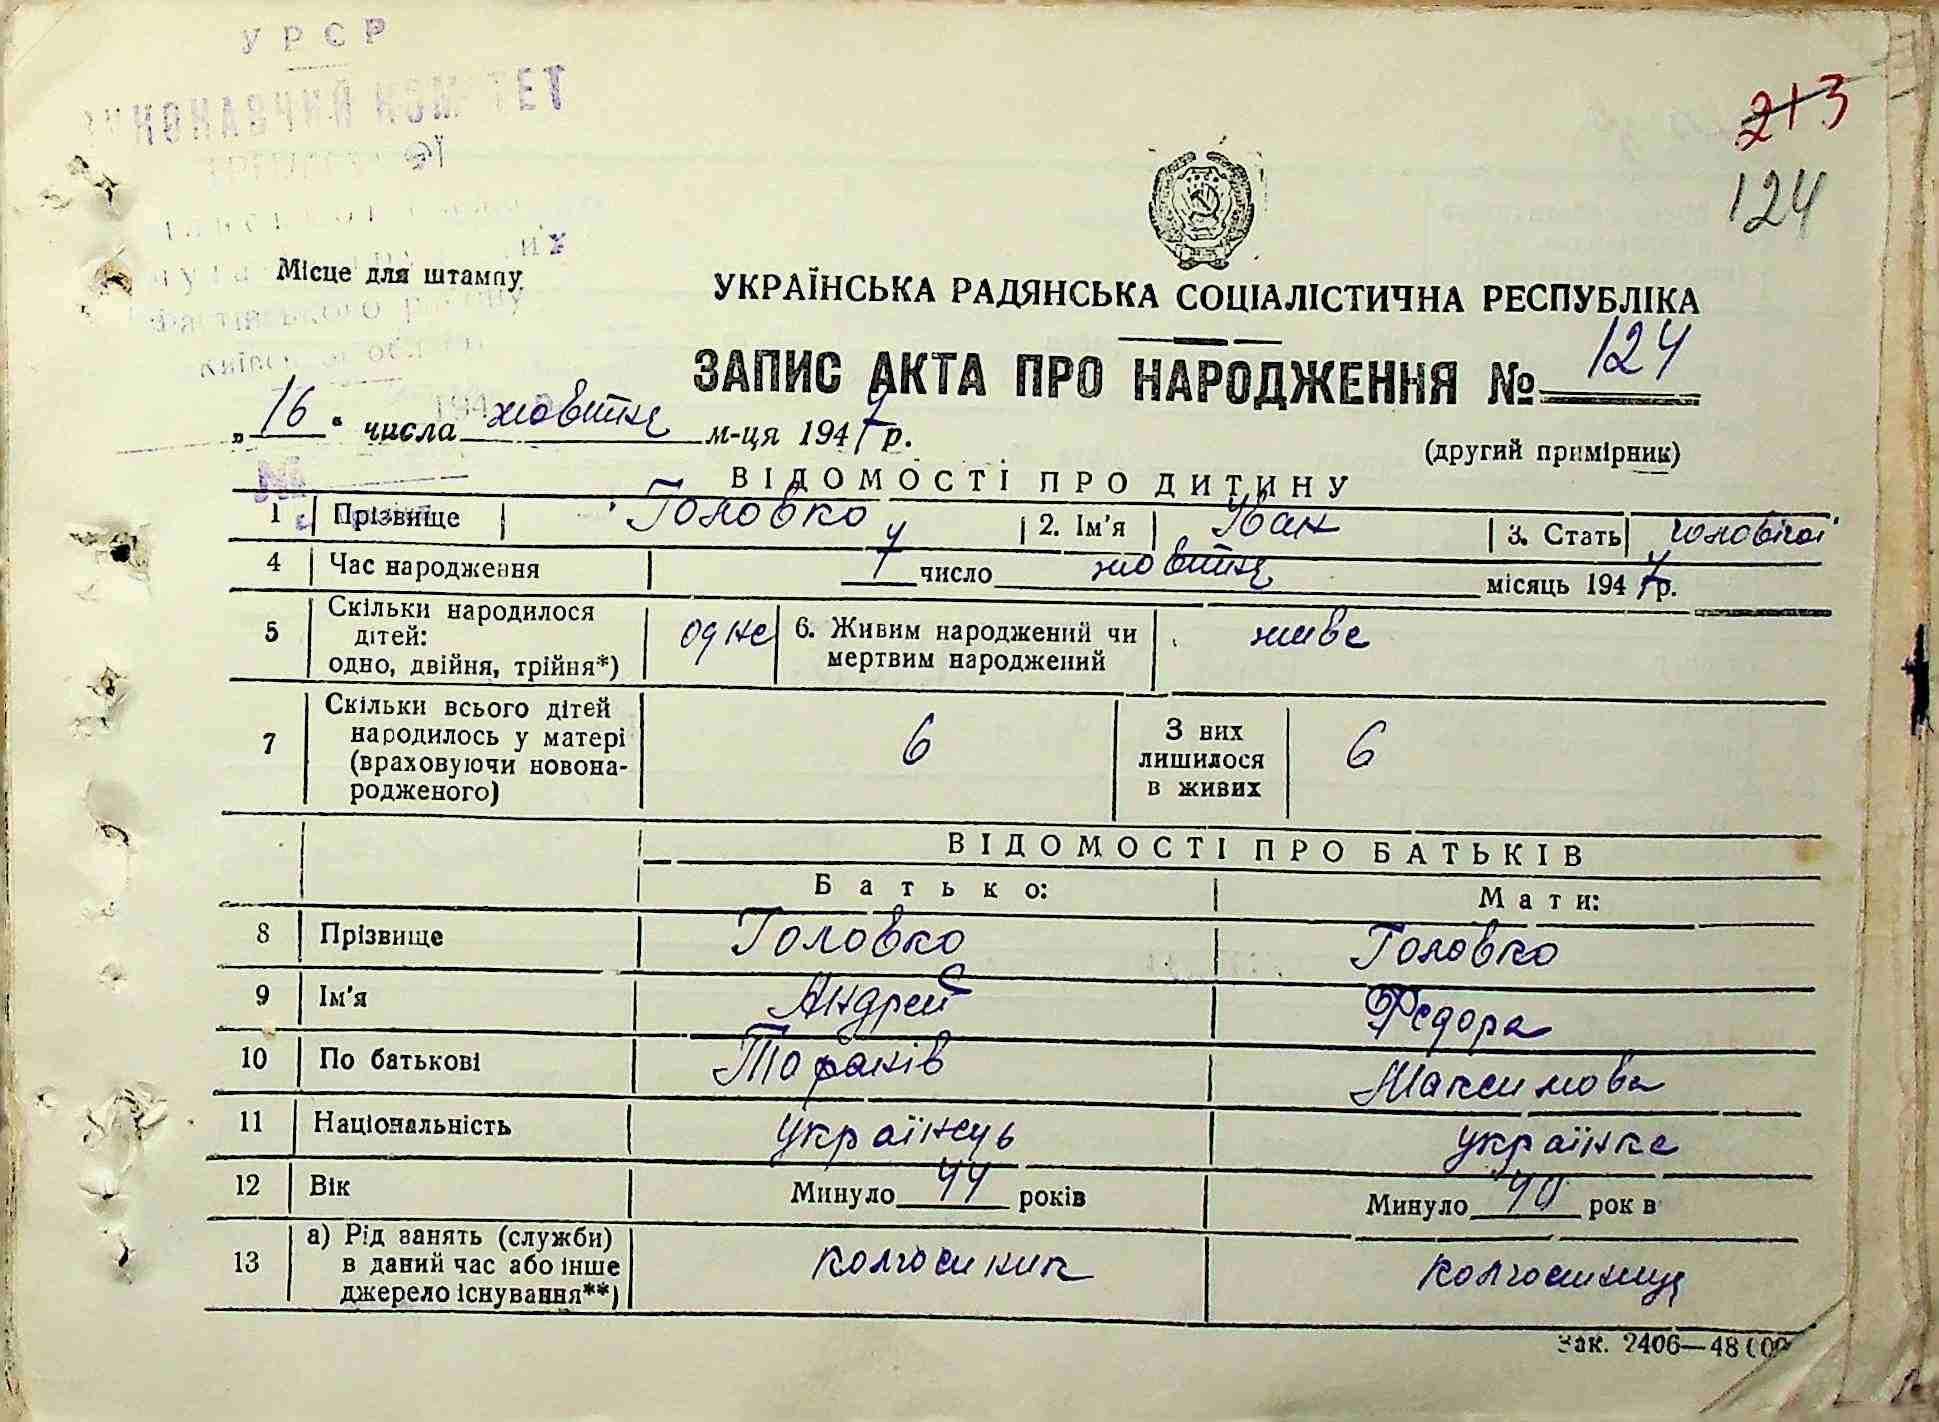 УРСР
ВИКОНАВЧИЙ КОМІТЕТ
213
124
Місце для штампу.
району
УКРАЇНСЬКА РАДЯНСЬКА СОЦІАЛІСТИЧНА РЕСПУБЛІКА
ЗАПИС АКТА ПРО НАРОДЖЕННЯ № 124
„16“ числа жовтня м-ця 1947 р.
(другий примірник)
ВІДОМОСТІ ПРО ДИТИНУ
1 Прізвище Головко 2. Ім'я Іван 3. Стать
4 Час народження 7 число жовтня місяць 1947 р.
5 Скільки народилося дітей: одно, двійня, трійня*) одне 6. Живим народжений чи мертвим народжений живе
7 Скільки всього дітей народилось у матері (враховуючи новонародженого) 6 З них лишилося в живих 6
ВІДОМОСТІ ПРО БАТЬКІВ
Батько: Мати:
8 Прізвище Головко Головко
9 Ім'я Андрей Федора
10 По батькові Максимова
11 Національність українець українка
12 Вік Минуло 44 років Минуло 40 рок в
13 а) Рід занять (служби) в даний час або інше джерело існування**) колгоспник колгоспниця
Зак. 2406—48